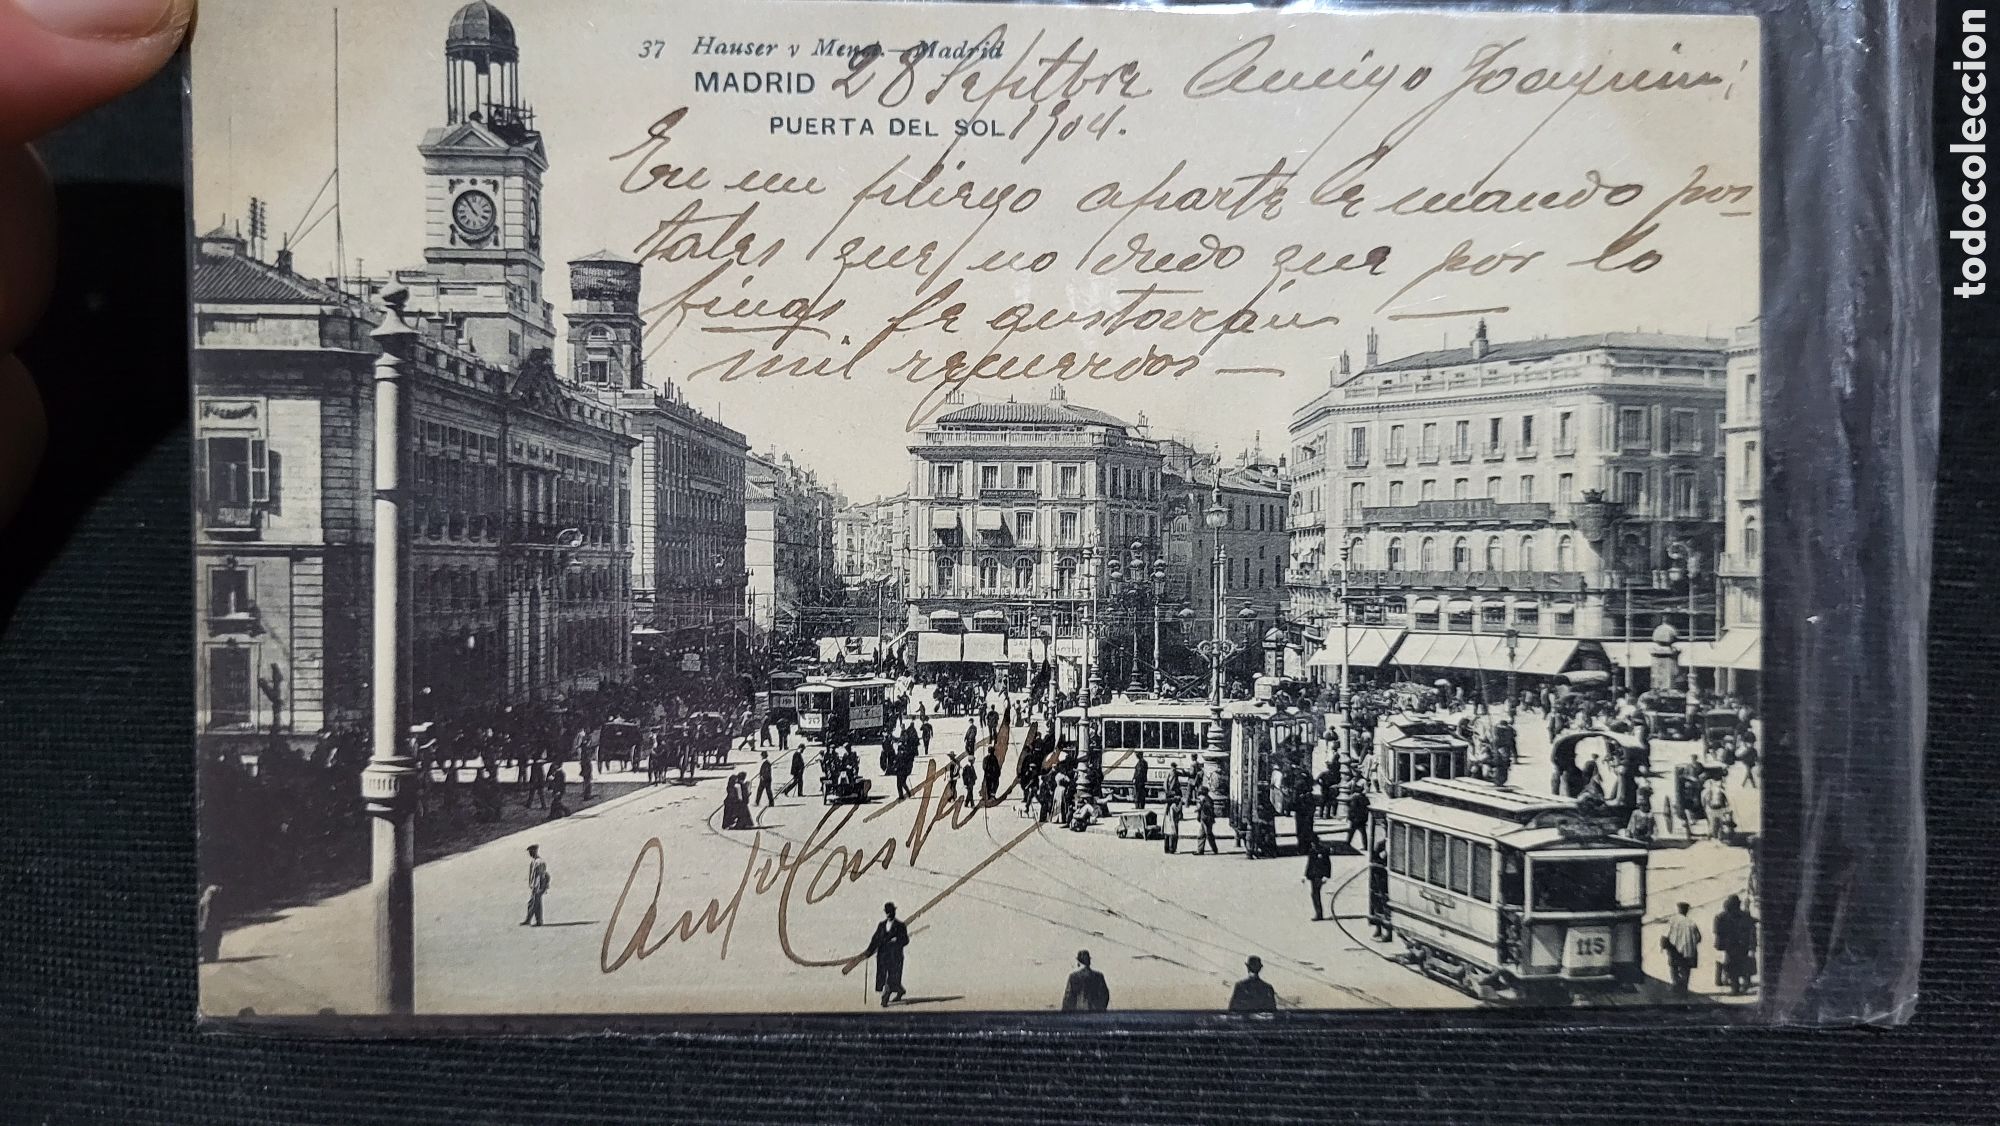 37 Hauser y Menet.—Madrid
MADRID 28 Septbre Amigo Joaquin;
PUERTA DEL SOL 1904.
En un pliego aparte le mando pos-
tales que no dudo que por lo
finas le gustarán —
mil recuerdos —
HOTEL DE
CREDIT LYONNAIS
107
115
Anto Castilla
todocoleccion